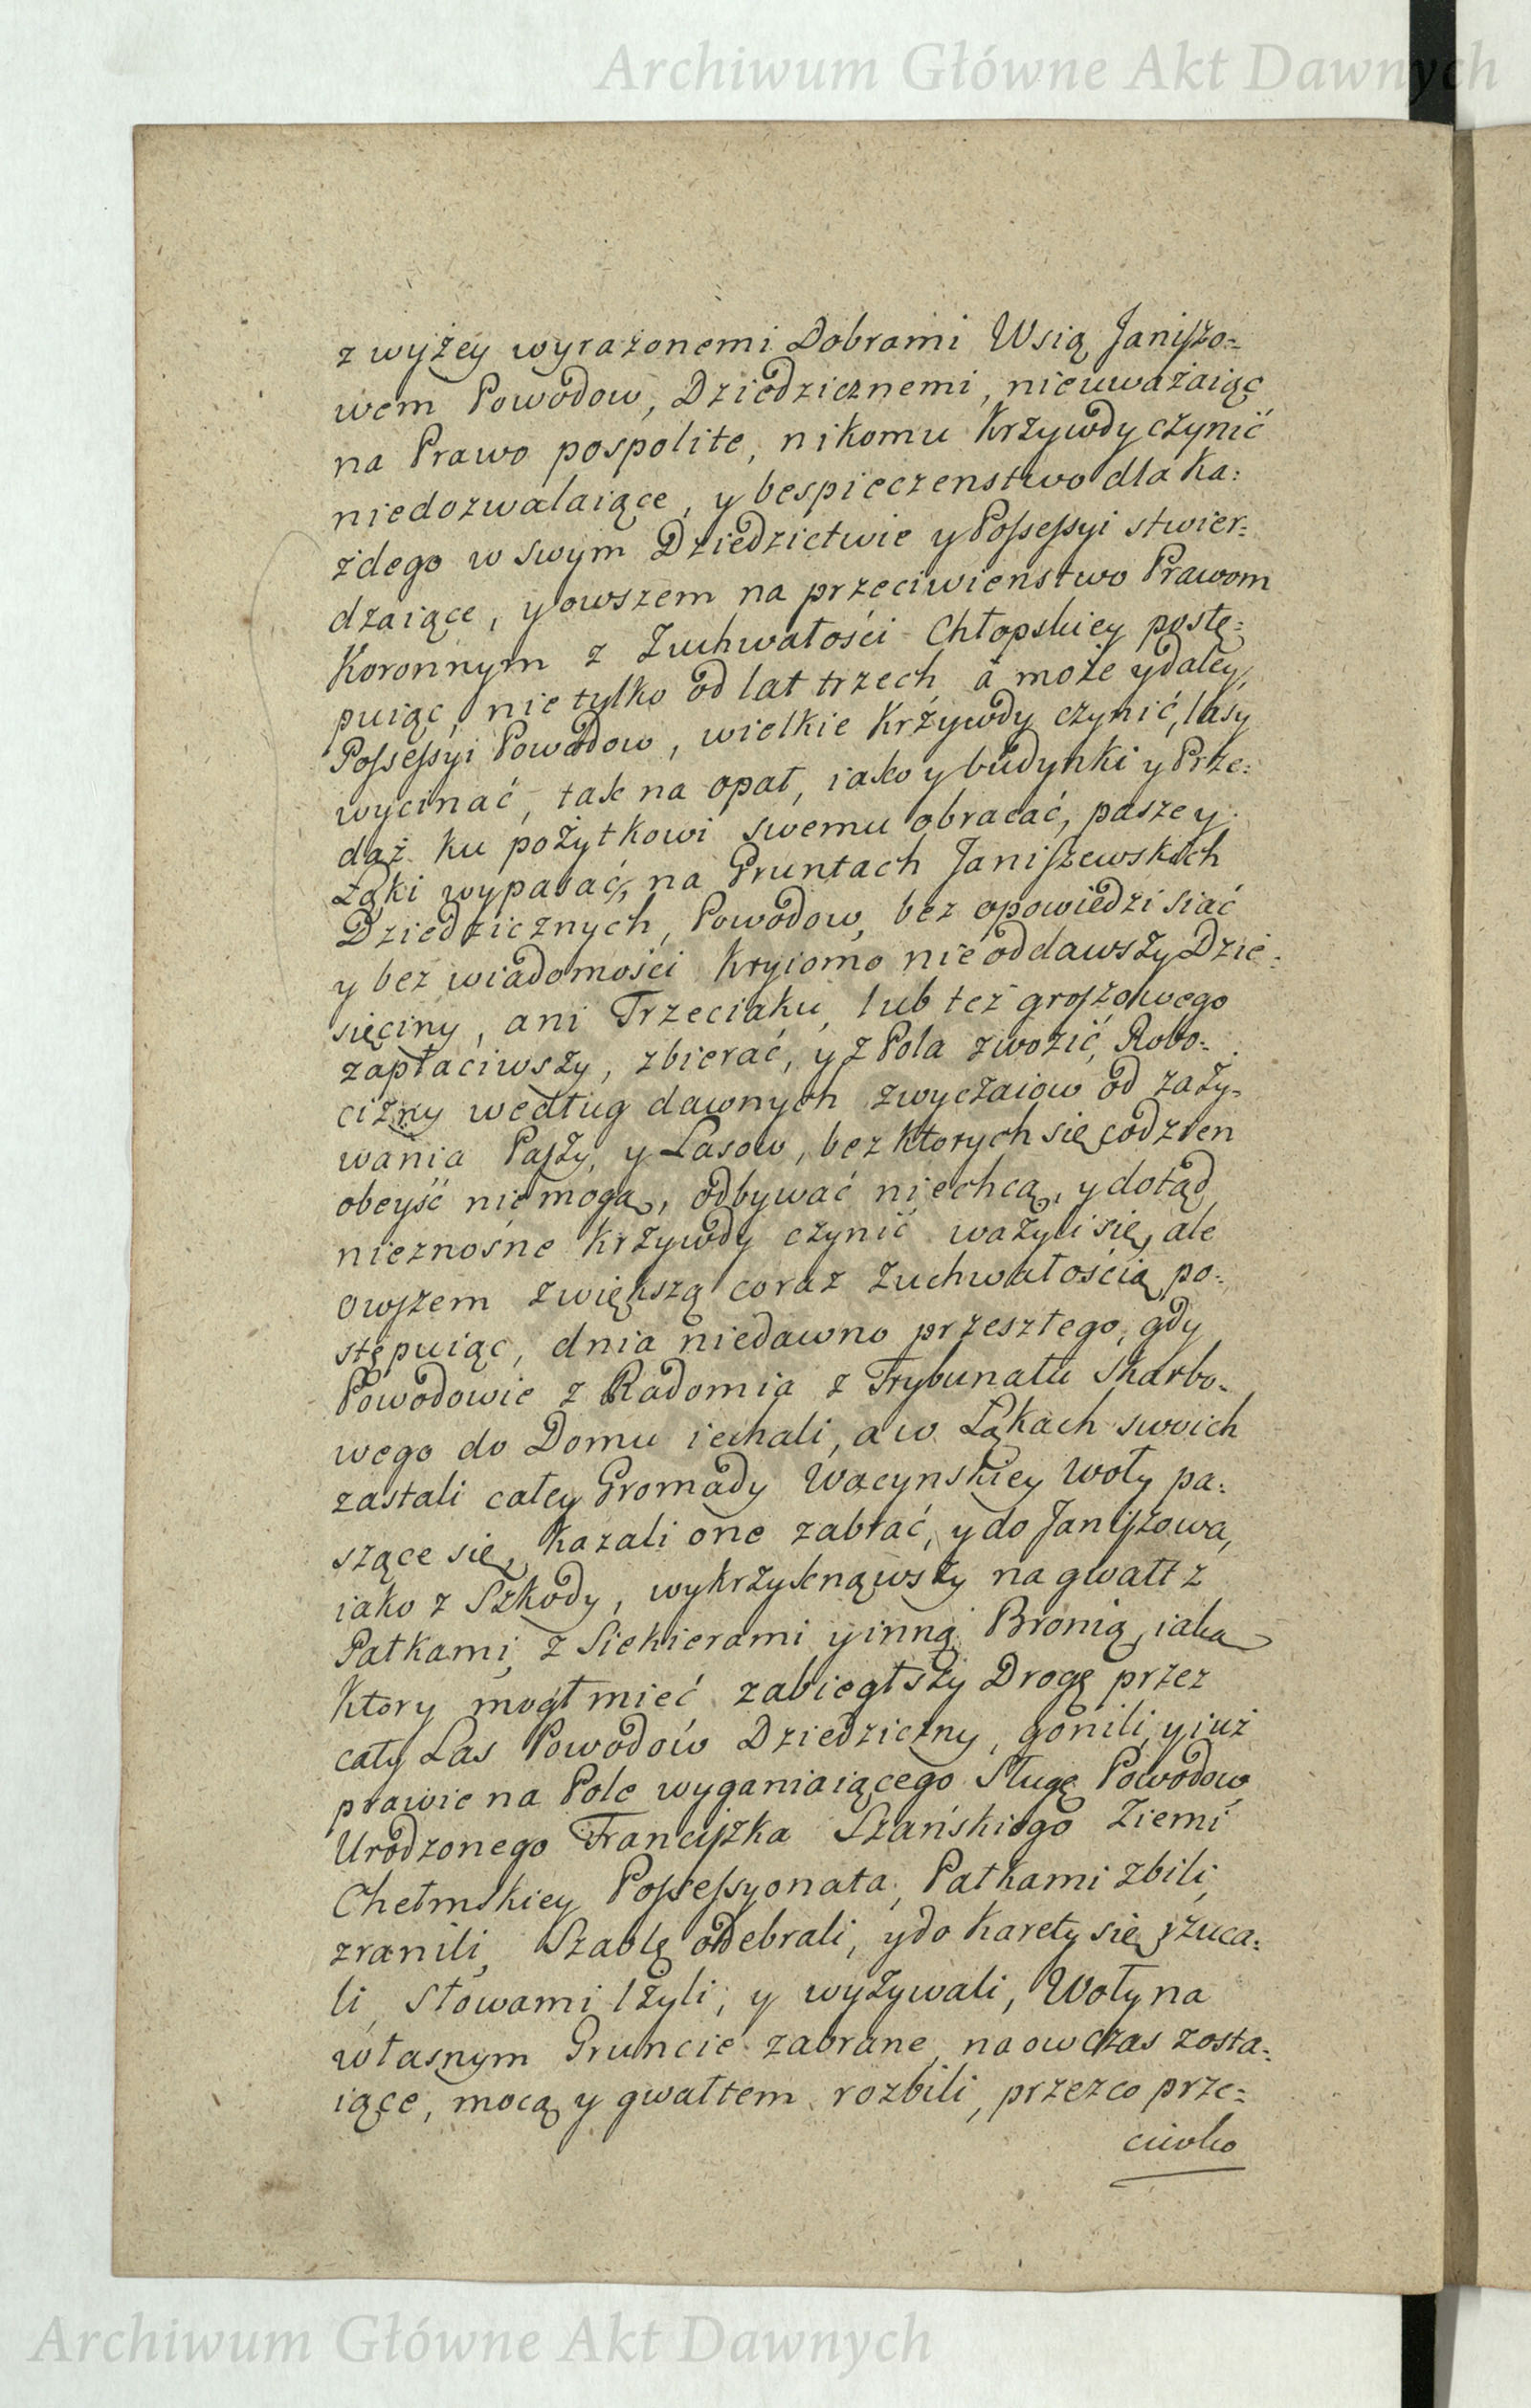 Archiwum Główne Akt Dawnych
z wyżey wyrażonemi Dobrami Wsią Janiszo=
wem Powodow, Dziedzicznemi, nieuważaiąc
na Prawo pospolite, nikomu Krzywdy czynić
niedozwalaiące, y bespieczenstwo dla Ka:
żdego w swym Dziedzictwie y Possessyi stwier:
dzaiące, y owszem na przeciwienstwo Prawom
Koronnym z Zuchwałości Chłopskiey postę:
puiąc, nie tylko od lat trzech, a może y daley,
Possessyi Powodow, wielkie Krzywdy czynić, lasy
wycinać, tak na opał, iako y budynki y Prze:
daż ku pożytkowi swemu obracać, pasze y
Łąki wypasać, na Gruntach Janiszewskich
Dziedzicznych, Powodow, bez opowiedzi siać
y bez wiadomości Kryiomo nie oddawszy Dzie:
sięciny, ani Trzeciaku, lub też groszowego
zapłaciwszy, zbierać, y z Pola zwozić, Robo-
cizny według dawnych zwyczaiow od zaży-
wania Paszy, y Lasow, bez ktorych się codzien
obeyść nie mogą, odbywać niechcą, y dotąd
nieznośne Krzywdy czynić ważyli się, ale
owszem z większą coraz zuchwałością po-
stępuiąc, dnia niedawno przeszłego, gdy
Powodowie z Radomia z Trybunału Skarbo-
wego do Domu iechali, a w Łąkach swoich
zastali całey Gromady Wacynskiey Woły pa:
szące się, Kazali one zabrać, y do Janiszowa,
iako z Szkody, wykrzyknąwszy na gwałt z
Pałkami, z Siekierami y inną Bronią, iaką
Ktory mogł mieć zabiegłszy Drogę przez
cały Las Powodow Dziedziczny, gonili, y iuż
prawie na Pole wyganiaiącego Sługę Powodow
Urodzonego Franciszka Szańskiego Ziemi
Chełmskiey Possessyonata, Pałkami zbili,
zranili, Szablę odebrali, y do Karety się rzuca:
li, Słowami lżyli, y wyzywali, Woły na
własnym Gruncie zabrane, na owczas zosta:
iące, mocą y gwałtem rozbili, przez co prze=
ciwko
Archiwum Główne Akt Dawnych